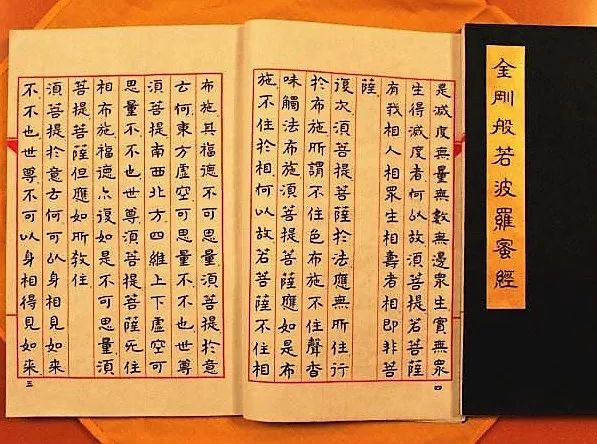 金剛般若波羅蜜經
是滅度無量無數無邊眾生實無眾
生得滅度者何以故須菩提若菩薩
有我相人相眾生相壽者相即非菩
薩
復次須菩提菩薩於法應無所住行
於布施所謂不住色布施不住聲香
味觸法布施須菩提菩薩應如是布
施不住於相何以故若菩薩不住相
四
布施其福德不可思量須菩提於意
云何東方虛空可思量不不也世尊
須菩提南西北方四維上下虛空可
思量不不也世尊須菩提菩薩无住
相布施福德亦復如是不可思量須
菩提菩薩但應如所教住
須菩提於意云何可以身相見如來
不不也世尊不可以身相得見如來
三